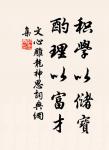 積學以儲寶
酌理以富才
文心雕龍神思詞典網
集